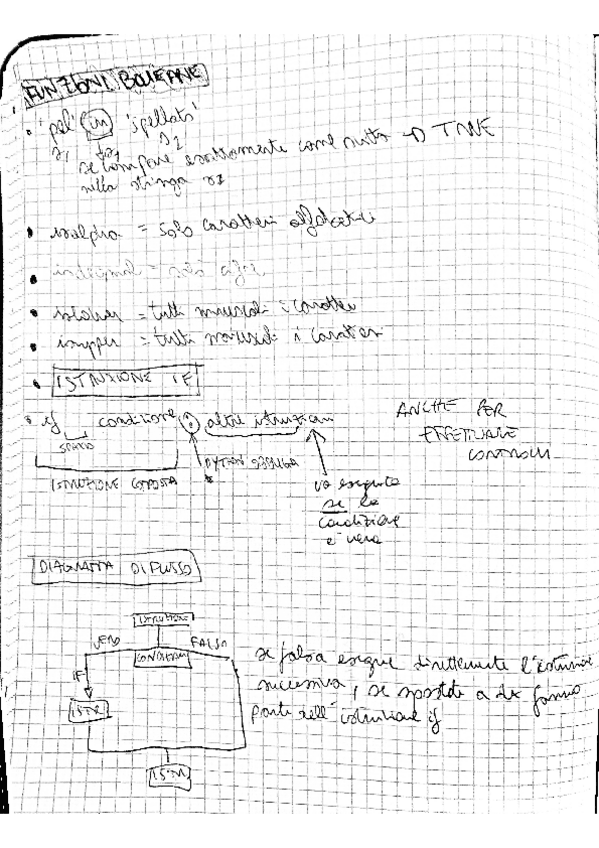 FUNZIONI BOLEANE
• 'pel' in 'spellato'
s1 s2
se compare esattamente come scritta → TRUE
nella stringa s2
• isalpha = solo caratteri alfabetici
• = solo cifre
• islower = tutti minuscoli i caratteri
• isupper = tutti maiuscoli i caratteri
• ISTRUZIONE IF
• if condizione : altre istruzioni
SPAZIO
ISTRUZIONE COMPOSTA
PYTHON
va eseguita
se la
condizione
è vera
ANCHE PER
EFFETTUARE
CONTROLLI
DIAGRAMMA DI FLUSSO
ISTRUZIONE
VERO FALSO
CONDIZIONE
IF
ISTR
ISTR
se falsa esegue direttamente l'istruzione
successiva, se spostate a dx fanno
parte dell'istruzione if